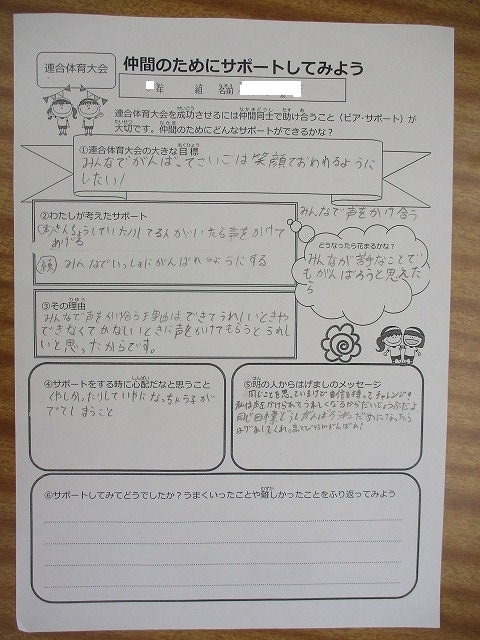 連合体育大会
仲間のためにサポートしてみよう
年 組 名前
連合体育大会を成功させるには仲間同士で助け合うこと（ピア・サポート）が
大切です。仲間のためにどんなサポートができるかな？
①連合体育大会の大きな目標
みんなでがんばってさいごは笑顔でおわれるように
したい！
②わたしが考えたサポート
きんちょうしていたりしてる人がいたら声をかけて
あげる
みんなでいっしょにがんばれるようにする
みんなで声をかけ合う
どうなったら花まるかな？
みんなが苦手なことで
もがんばろうと思えた
ら
③その理由
みんなで声をかけ合う理由はできてうれしいときや
できなくてかなしいときに声をかけてもらうとうれし
いと思ったからです。
④サポートをする時に心配だなと思うこと
くやしかったりしていやになっちゃう子が
でてしまうこと
⑤班の人からはげましのメッセージ
同じことを思っているけど自信を持ってチャレンジ！
私は声をかけられてうれしくなるからだいじょうぶだよ
同じ目標どうしがんばろうね だめになったら
はげましてくれ。
⑥サポートしてみてどうでしたか？うまくいったことや難しかったことをふり返ってみよう